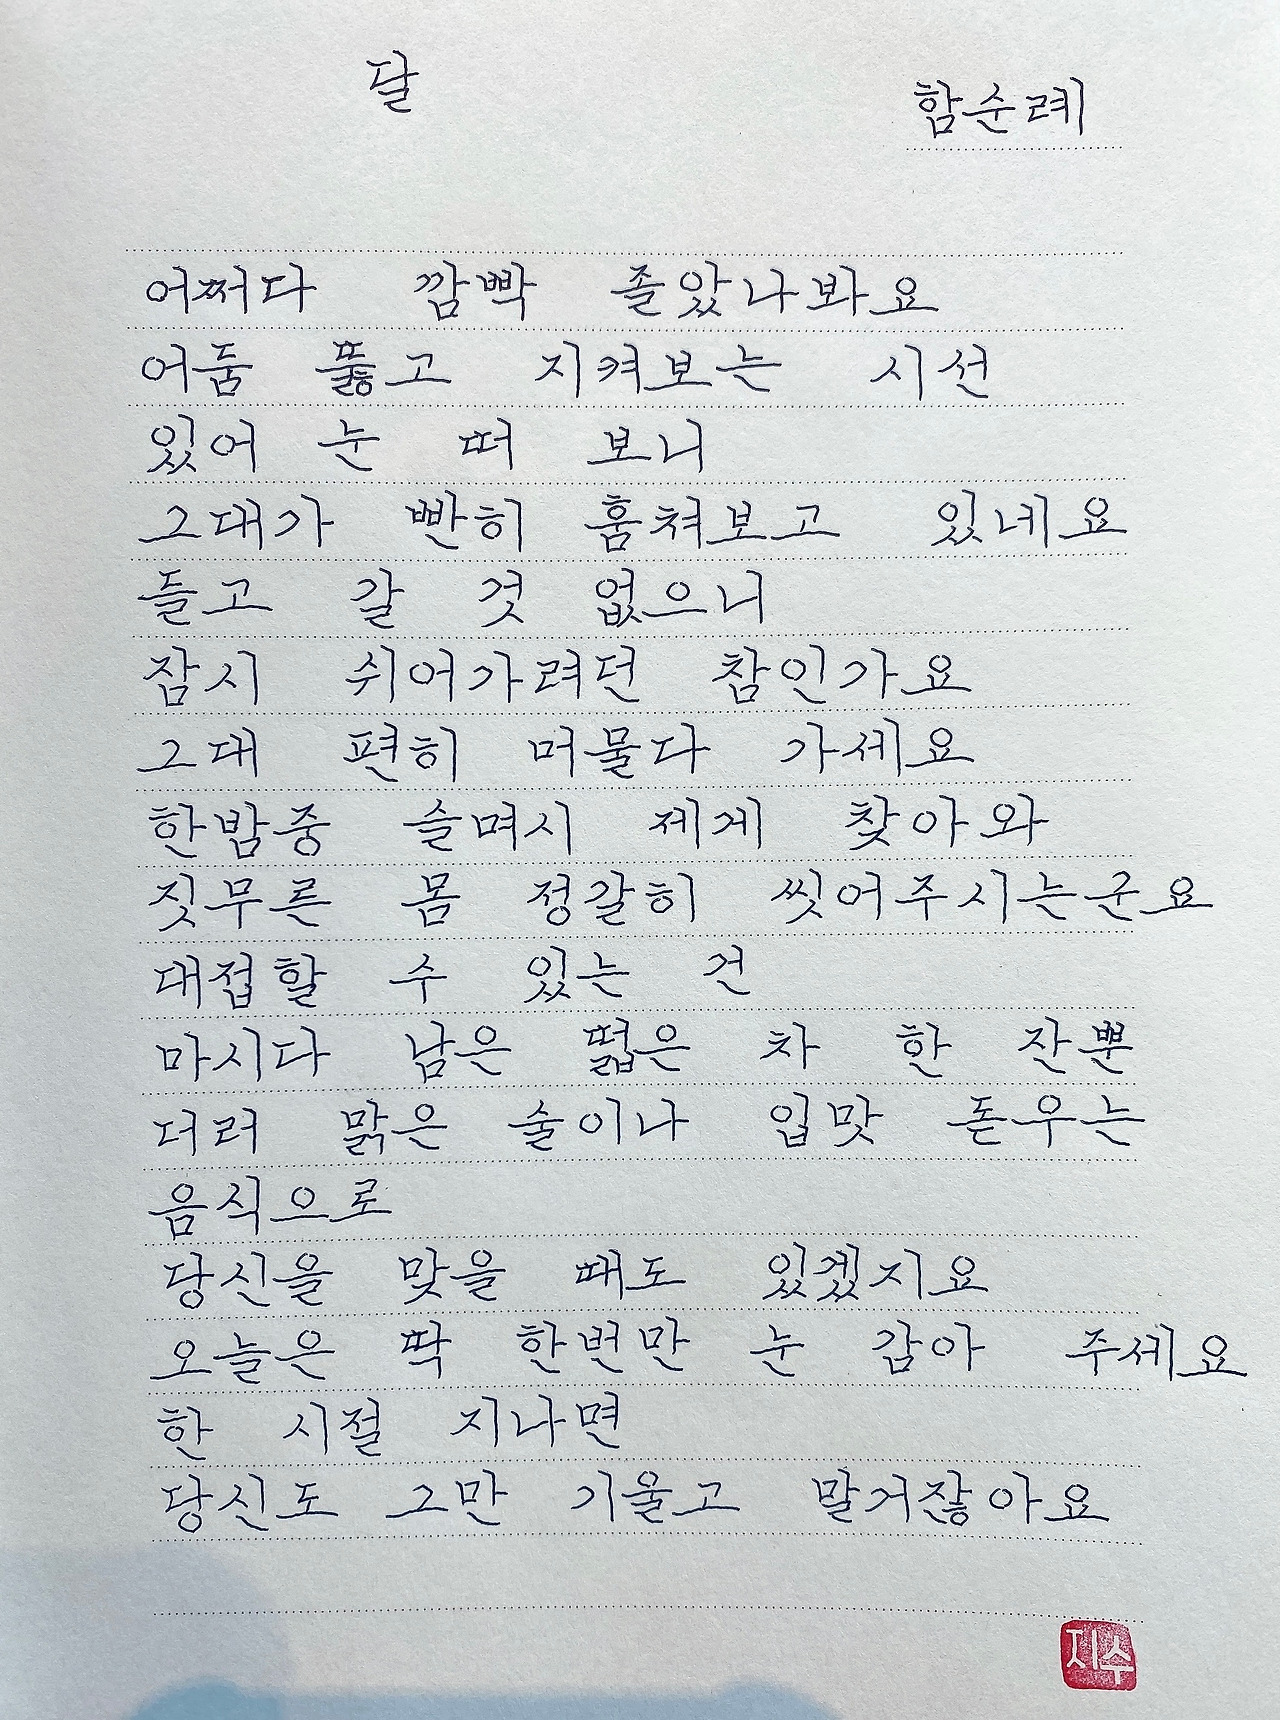 달
함순례
어쩌다 깜빡 졸았나봐요
어둠 뚫고 지켜보는 시선
있어 눈 떠 보니
그대가 빤히 훔쳐보고 있네요
들고 갈 것 없으니
잠시 쉬어가려던 참인가요
그대 편히 머물다 가세요
한밤중 슬며시 제게 찾아와
짓무른 몸 정갈히 씻어주시는군요
대접할 수 있는 건
마시다 남은 떫은 차 한 잔뿐
더러 맑은 술이나 입맛 돋우는
음식으로
당신을 맞을 때도 있겠지요
오늘은 딱 한번만 눈 감아 주세요
한 시절 지나면
당신도 그만 기울고 말거잖아요
지수